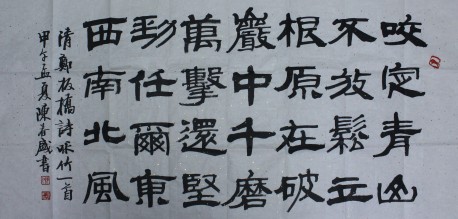 咬定青山
不放鬆立
根原在破
巖中千磨
萬擊還堅
勁任爾東
西南北風
清鄭板橋詩咏竹一首
甲午孟夏陳盛書